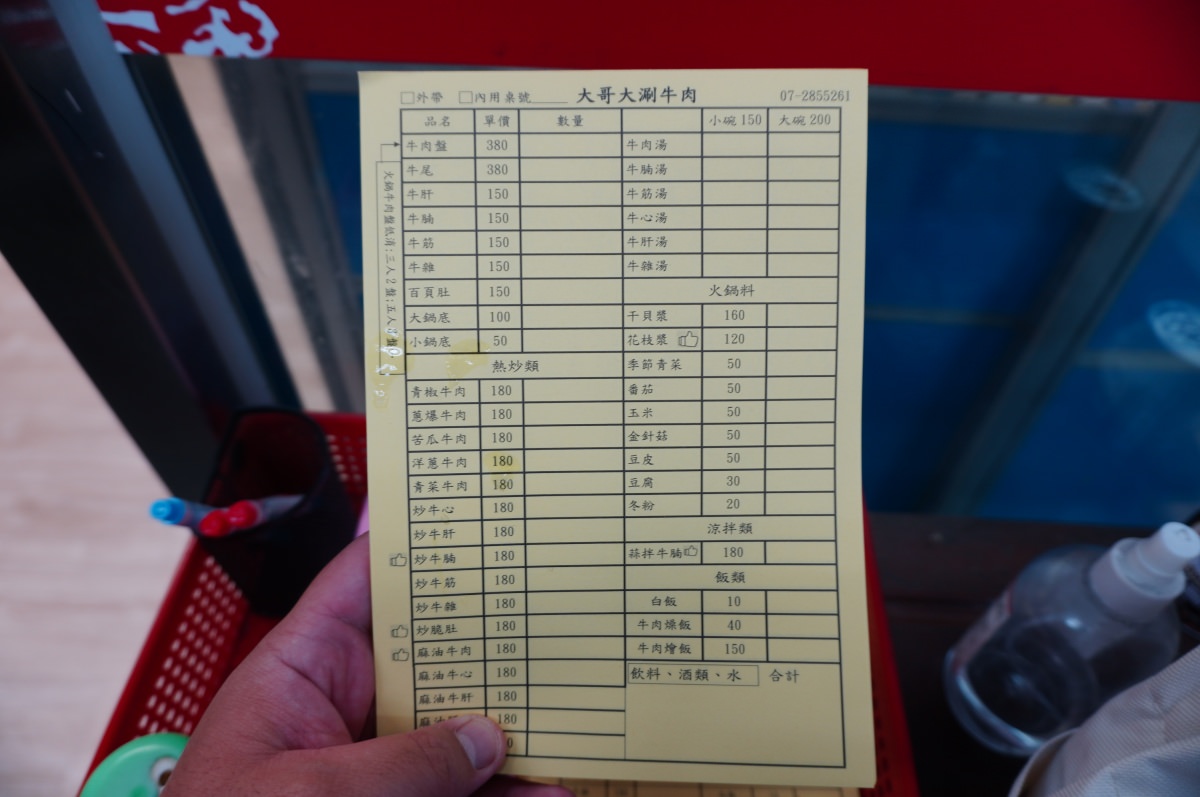 □外帶 □內用桌號_____ 大哥大涮牛肉 07-2855261
品名 單價 數量
牛肉盤 380
牛尾 380
牛肝 150
牛腩 150
牛筋 150
牛雜 150
百頁肚 150
大鍋底 100
小鍋底 50
火鍋牛肉盤低消:三人2盤;五人
熱炒類
青椒牛肉 180
蔥爆牛肉 180
苦瓜牛肉 180
洋蔥牛肉 180
青菜牛肉 180
炒牛心 180
炒牛肝 180
炒牛腩 180
炒牛筋 180
炒牛雜 180
炒脆肚 180
麻油牛肉 180
麻油牛心 180
麻油牛肝 180
麻油 180
小碗150 大碗200
牛肉湯
牛腩湯
牛筋湯
牛心湯
牛肝湯
牛雜湯
火鍋料
干貝漿 160
花枝漿 120
季節青菜 50
番茄 50
玉米 50
金針菇 50
豆皮 50
豆腐 30
冬粉 20
涼拌類
蒜拌牛腩 180
飯類
白飯 10
牛肉燥飯 40
牛肉燴飯 150
飲料、酒類、水 合計